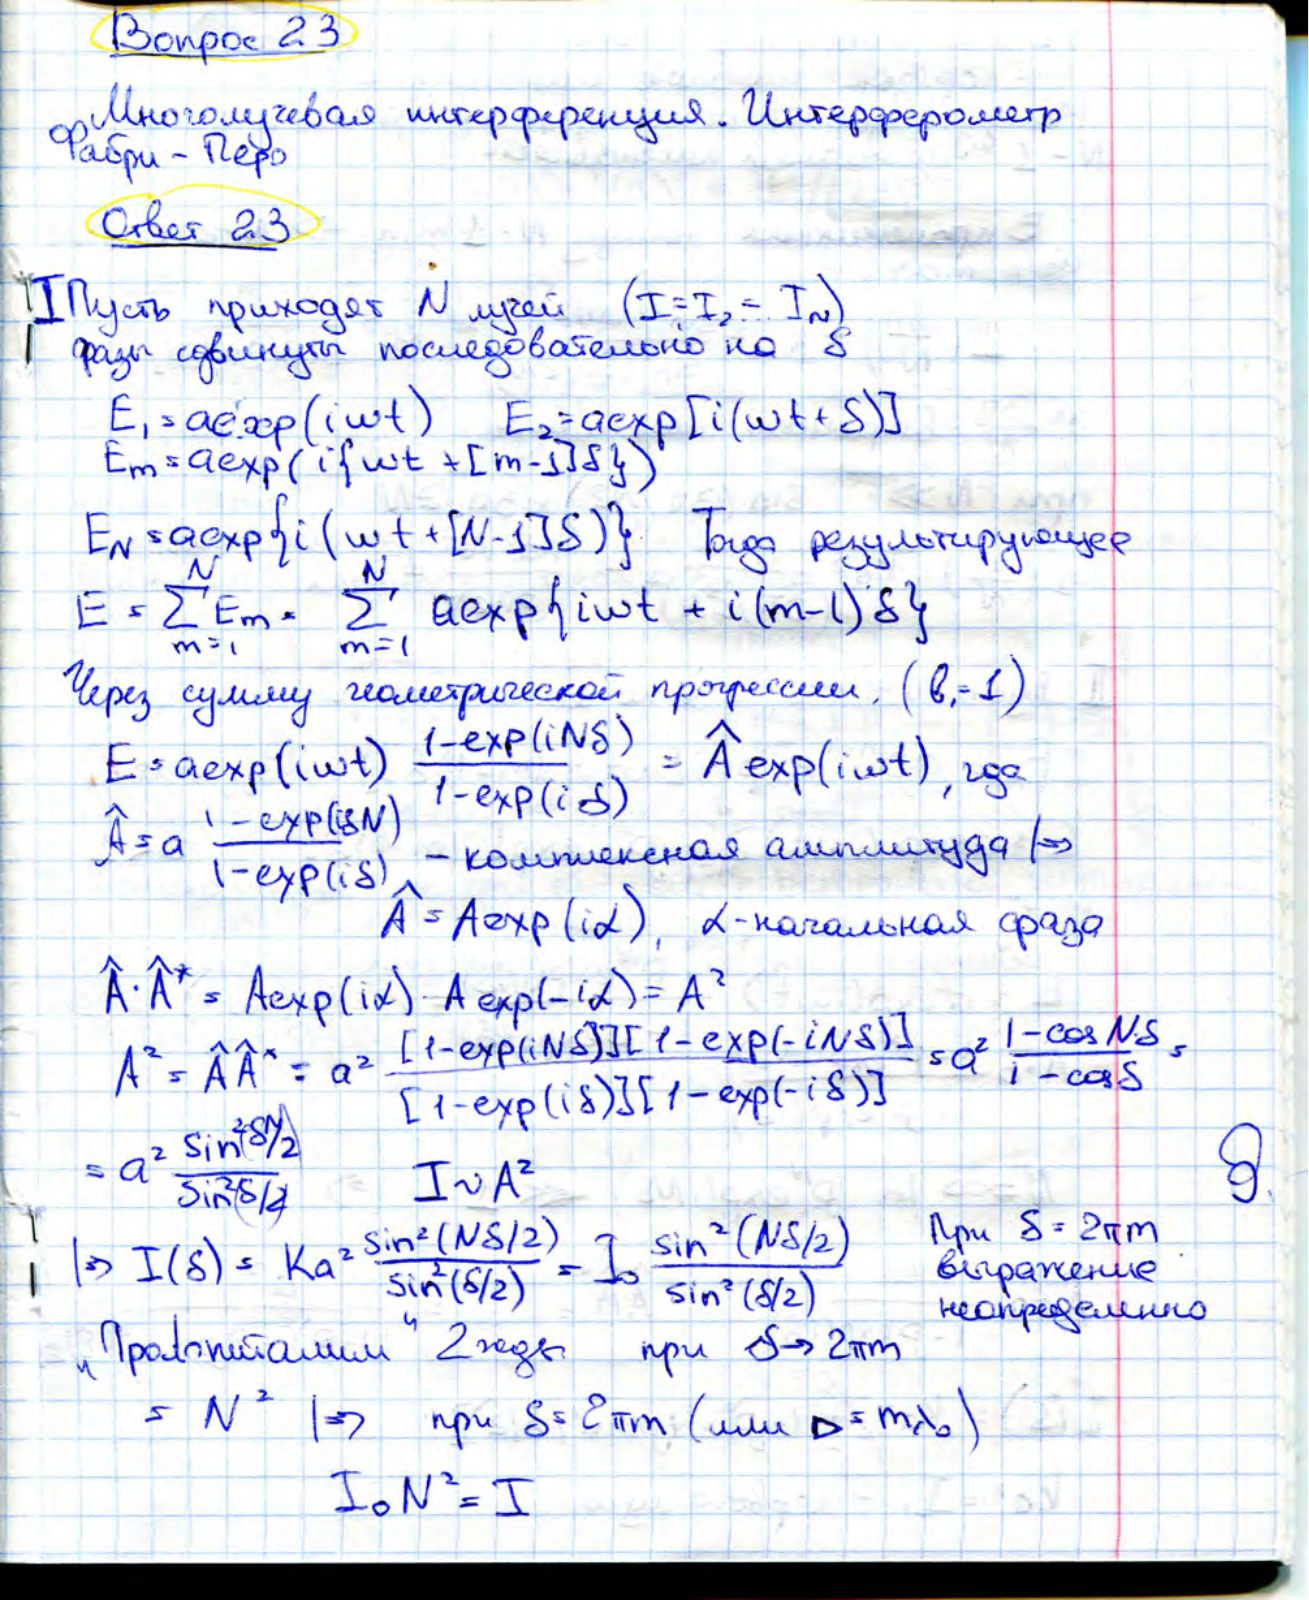 Вопрос 23
Многолучевая интерференция. Интерферометр
Фабри - Перо
Ответ 23
I Пусть приходят N лучей (I₁=I₂=...I_N)
фазы сдвинуты последовательно на δ
E₁=aexp(iωt) E₂=aexp[i(ωt+δ)]
E_m=aexp(i{ωt+[m-1]δ})
E_N=aexp{i(ωt+[N-1]δ)} Тогда результирующее
E = ∑_{m=1}^{N} E_m = ∑_{m=1}^{N} aexp{iωt + i(m-1)δ}
Через сумму геометрической прогрессии, (b₁=1)
E=aexp(iωt) (1-exp(iNδ))/(1-exp(iδ)) = Âexp(iωt), где
Â=a (1-exp(iδN))/(1-exp(iδ)) - комплексная амплитуда |⇒
Â=Aexp(iα), α-начальная фаза
Â·Â* = Aexp(iα)·Aexp(-iα)=A²
A²=ÂÂ* = a² ([1-exp(iNδ)][1-exp(-iNδ)])/([1-exp(iδ)][1-exp(-iδ)]) = a² (1-cosNδ)/(1-cosδ) =
= a² sin²(δN/2)/sin²(δ/2) I~A²
|⇒ I(δ) = Ka² sin²(Nδ/2)/sin²(δ/2) = I₀ sin²(Nδ/2)/sin²(δ/2) При δ=2πm
выражение
неопределенно
„Пролопиталим“ 2жды при δ→2πm
= N² |⇒ при δ=2πm (или Δ=mλ₀)
I₀N²=I